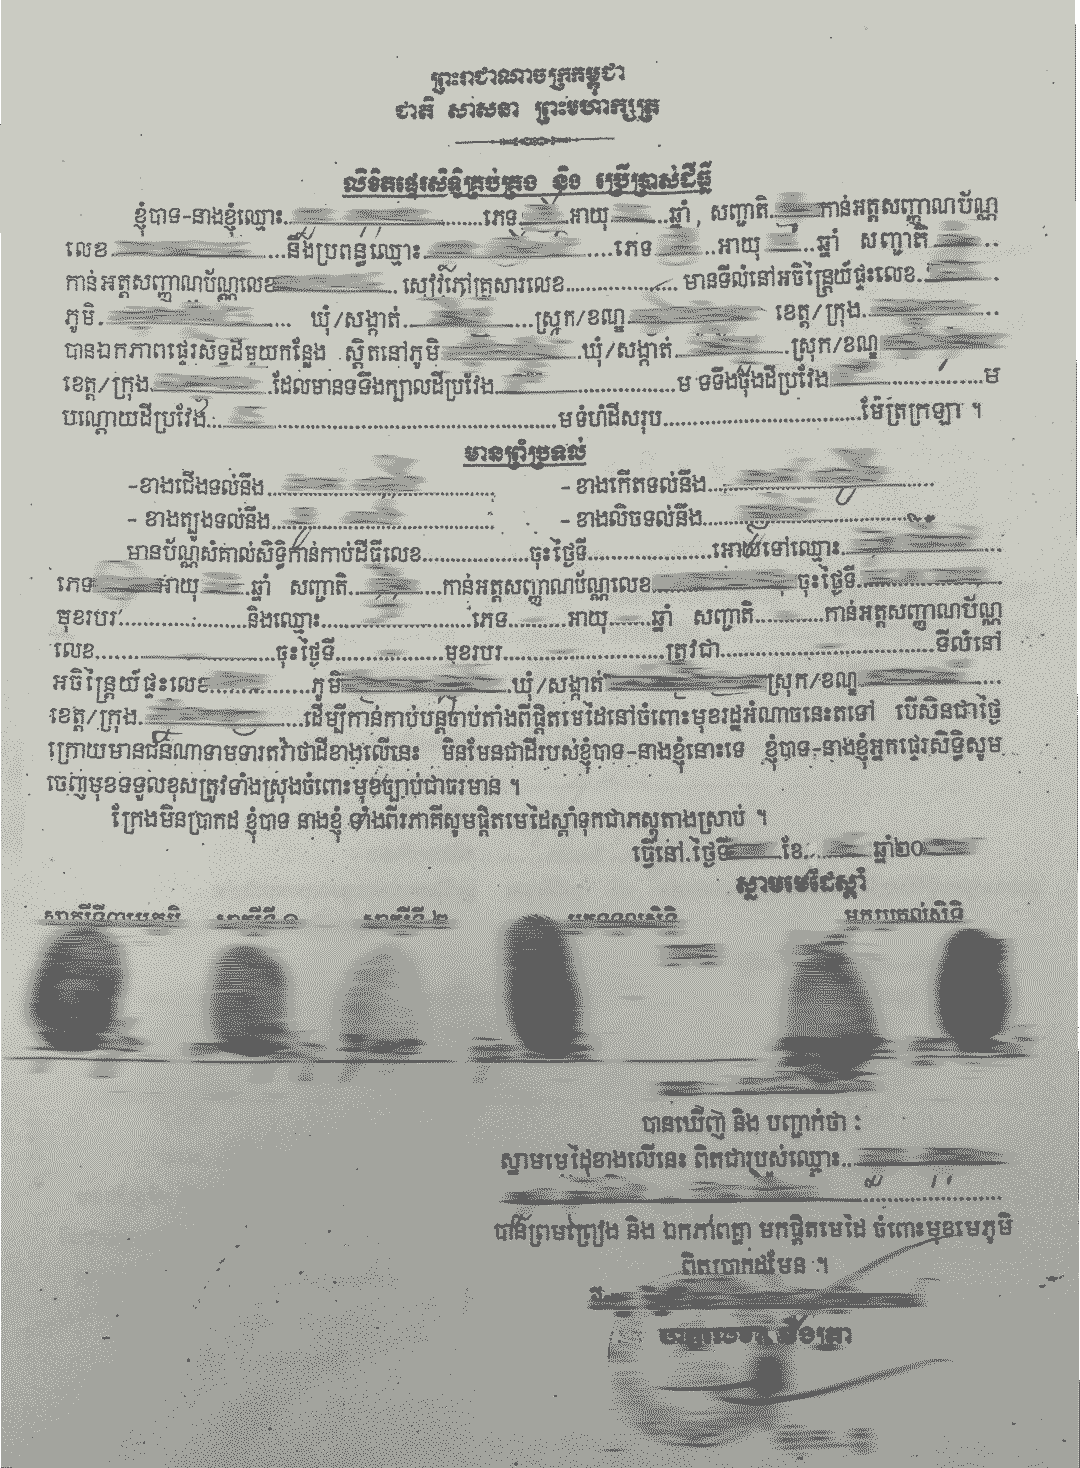 ព្រះរាជាណាចក្រកម្ពុជា
ជាតិ សាសនា ព្រះមហាក្សត្រ
លិខិតផ្ទេរសិទ្ធិគ្រប់គ្រង និង ប្រើប្រាស់ដីធ្លី
ខ្ញុំបាទ-នាងខ្ញុំឈ្មោះ..........ភេទ......អាយុ......ឆ្នាំ , សញ្ជាតិ......កាន់អត្តសញ្ញាណប័ណ្ណ
លេខ..........និងប្រពន្ធឈ្មោះ..........ភេទ......អាយុ......ឆ្នាំ សញ្ជាតិ......
កាន់អត្តសញ្ញាណប័ណ្ណលេខ.......... សៀវភៅគ្រួសារលេខ.......... មានទីលំនៅអចិន្ត្រៃយ៍ផ្ទះលេខ......
ភូមិ.......... ឃុំ/សង្កាត់..........ស្រុក/ខណ្ឌ.......... ខេត្ត/ក្រុង..........
បានឯកភាពផ្ទេរសិទ្ធដីមួយកន្លែង ស្ថិតនៅភូមិ..........ឃុំ/សង្កាត់..........ស្រុក/ខណ្ឌ..........
ខេត្ត/ក្រុង..........ដែលមានទទឹងក្បាលដីប្រវែង..........ម ទទឹងចុងដីប្រវែង..........ម
បណ្តោយដីប្រវែង..........មទំហំដីសរុប..........ម៉ែត្រក្រឡា ។
មានព្រំប្រទល់
-ខាងជើងទល់នឹង.......... - ខាងកើតទល់នឹង..........
- ខាងត្បូងទល់នឹង.......... - ខាងលិចទល់នឹង..........
មានប័ណ្ណសំគាល់សិទ្ធិកាន់កាប់ដីធ្លីលេខ..........ចុះថ្ងៃទី..........អោយទៅឈ្មោះ..........
ភេទ......អាយុ......ឆ្នាំ សញ្ជាតិ..........កាន់អត្តសញ្ញាណប័ណ្ណលេខ..........ចុះថ្ងៃទី..........
មុខរបរ..........និងឈ្មោះ..........ភេទ......អាយុ......ឆ្នាំ សញ្ជាតិ..........កាន់អត្តសញ្ញាណប័ណ្ណ
លេខ..........ចុះថ្ងៃទី..........មុខរបរ..........ត្រូវជា..........ទីលំនៅ
អចិន្ត្រៃយ៍ផ្ទះលេខ..........ភូមិ..........ឃុំ/សង្កាត់..........ស្រុក/ខណ្ឌ..........
ខេត្ត/ក្រុង..........ដើម្បីកាន់កាប់បន្តចាប់តាំងពីផ្តិតមេដៃនៅចំពោះមុខរដ្ឋអំណាចនេះតទៅ បើសិនជាថ្ងៃ
ក្រោយមានជនណាទាមទារតវ៉ាថាដីខាងលើនេះ មិនមែនជាដីរបស់ខ្ញុំបាទ-នាងខ្ញុំនោះទេ ខ្ញុំបាទ-នាងខ្ញុំអ្នកផ្ទេរសិទ្ធិសូម
ចេញមុខទទួលខុសត្រូវទាំងស្រុងចំពោះមុខច្បាប់ជាធរមាន ។
ក្រែងមិនប្រាកដ ខ្ញុំបាទ នាងខ្ញុំ ទាំងពីរភាគីសូមផ្តិតមេដៃស្តាំទុកជាភស្តុតាងស្រាប់ ។
ធ្វើនៅ.ថ្ងៃទី......ខែ......ឆ្នាំ២០
ស្នាមមេដៃស្តាំ
សាក្សីទី១ សាក្សីទី ២ អ្នកទទួលសិទ្ធិ អ្នកប្រគល់សិទ្ធិ
បានឃើញ និង បញ្ជាក់ថា ៖
ស្នាមមេដៃខាងលើនេះ ពិតជារបស់ឈ្មោះ..........
បានព្រមព្រៀង និង ឯកភាពគ្នា មកផ្តិតមេដៃ ចំពោះមុខមេភូមិ
ពិតប្រាកដមែន ។